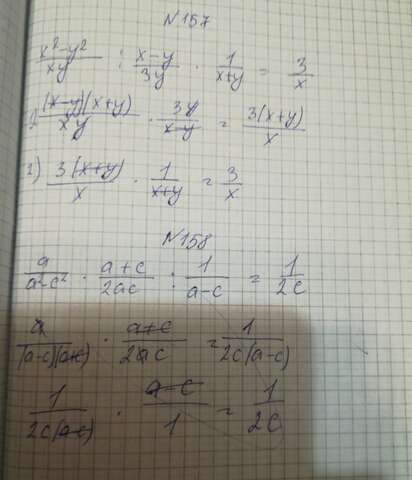 №157
x²-y²/xy : x-y/3y · 1/x+y = 3/x
1) (x-y)(x+y)/xy · 3y/x-y = 3(x+y)/x
2) 3(x+y)/x · 1/x+y = 3/x
№158
a/a²-c² · a+c/2ac : 1/a-c = 1/2c
a/(a-c)(a+c) · a+c/2ac = 1/2c(a-c)
1/2c(a-c) · a-c/1 = 1/2c